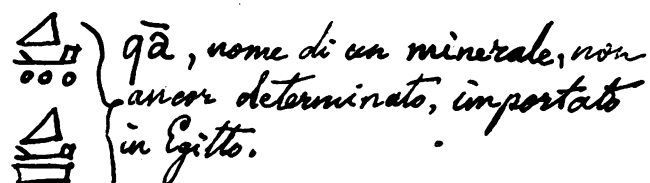 qā, nome di un minerale, non
ancor determinato, importato
in Egitto.